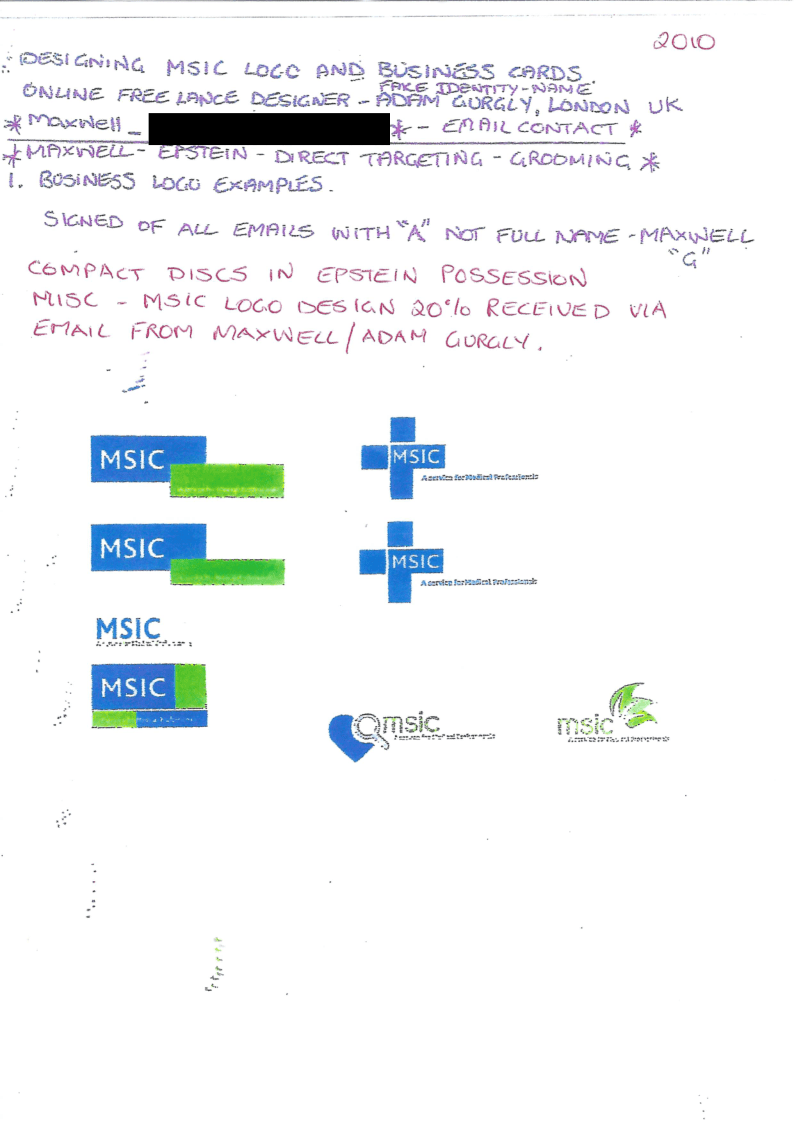 2010
DESIGNING MSIC LOGO AND BUSINESS CARDS.
FAKE IDENTITY-NAME
ONLINE FREE LANCE DESIGNER - ADAM GURGLY, LONDON UK
* Maxwell - * - EMAIL CONTACT *
* MAXWELL - EPSTEIN - DIRECT TARGETING - GROOMING *
1. BUSINESS LOGO EXAMPLES.
SIGNED OF ALL EMAILS WITH "A" NOT FULL NAME - MAXWELL
"G"
COMPACT DISCS IN EPSTEIN POSSESSION
MISC - MSIC LOGO DESIGN 20% RECEIVED VIA
EMAIL FROM MAXWELL / ADAM GURGLY.
MSIC
MSIC
A service for Medical Professionals
MSIC
MSIC
A service for Medical Professionals
MSIC
MSIC
msic
msic